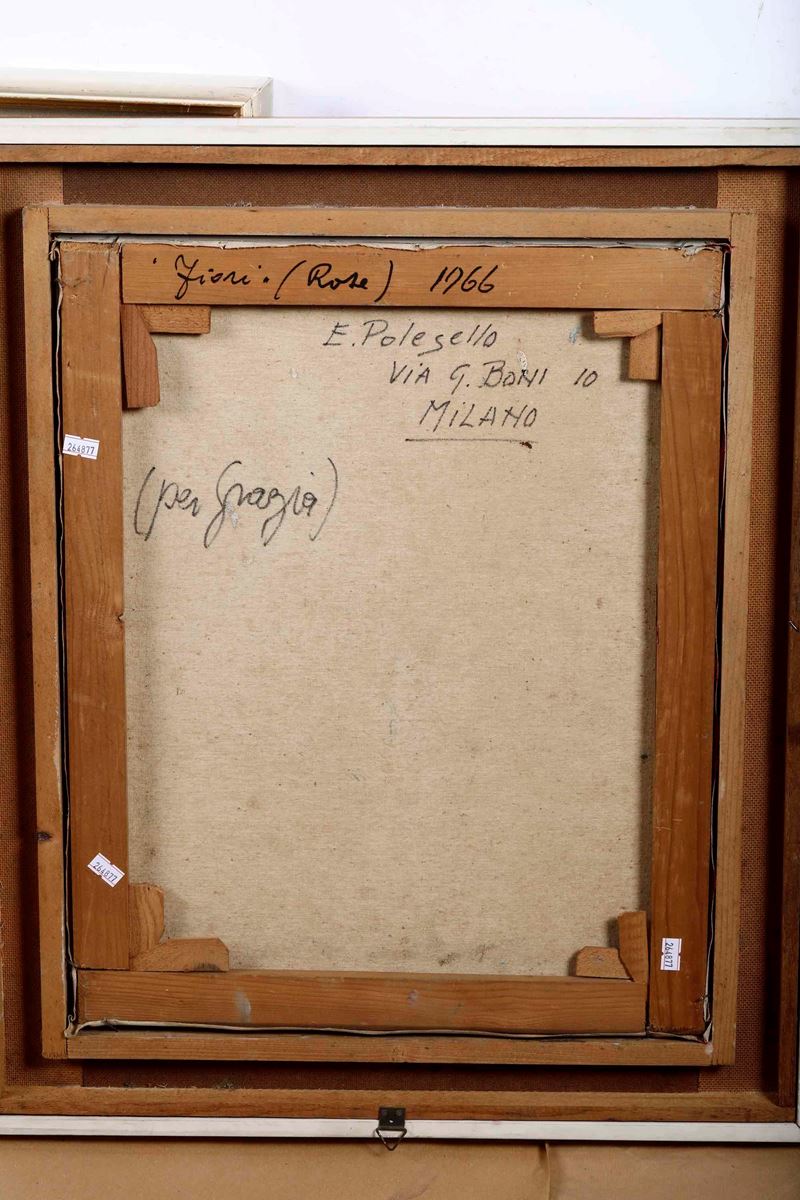 "Fiori" (Rose) 1966
E. Polesello
VIA G. BONI 10
MILANO
(per Grazia)
264877
264877
264877